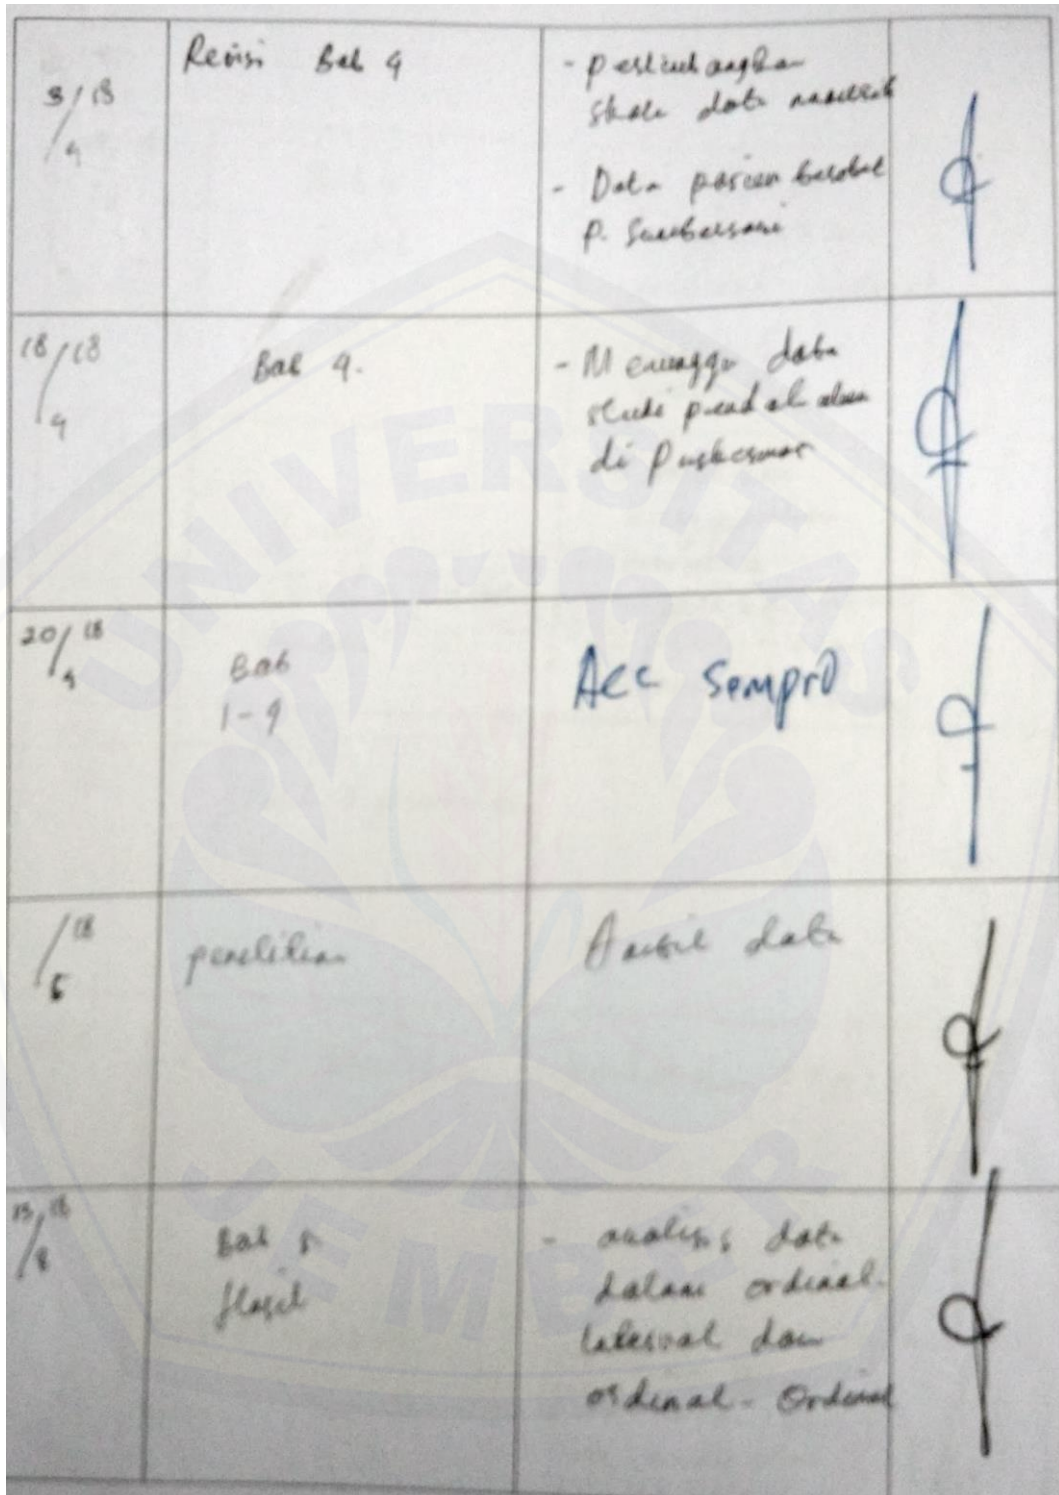 3/18
4
Revisi Bab 4
- pertimbangkan
skala data
- Data pasien berobat
P. Sumbersari
18/18
4
Bab 4.
- Menunggu data
studi pendahuluan
di Puskesmas
20/18
4
Bab
1-4
Acc Sempro
/18
penelitian
Ambil data
/18
8
Bab 5
Hasil
- analisis data
dalam ordinal-
interval dan
ordinal - Ordinal
UNIVERSITAS
JEMBER